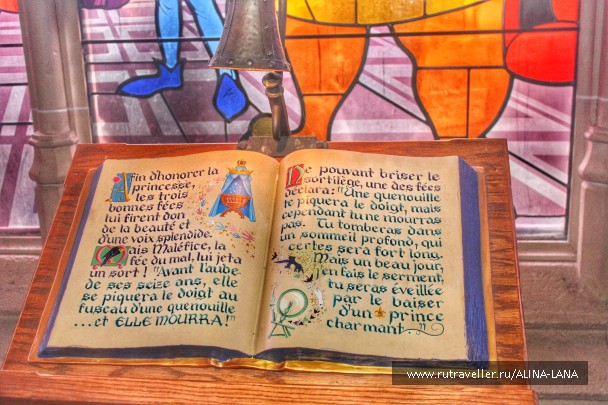 Afin d'honorer la
princesse,
les trois
bonnes fées
lui firent don
de la beauté et
d'une voix splendide.
Mais Maléfice, la
fée du mal, lui jeta
un sort ! "Avant l'aube
de ses seize ans, elle
se piquera le doigt au
fuseau d'une quenouille
...et ELLE MOURRA!"
Ne pouvant briser le
sortilège, une des fées
déclara: "Une quenouille
te piquera le doigt, mais
cependant tu ne mourras
pas. Tu tomberas dans
un sommeil profond, qui
certes sera fort long.
Mais un beau jour,
j'en fais le serment,
tu seras éveillée
par le baiser
d'un prince
charmant..."
www.rutraveller.ru/ALINA-LANA